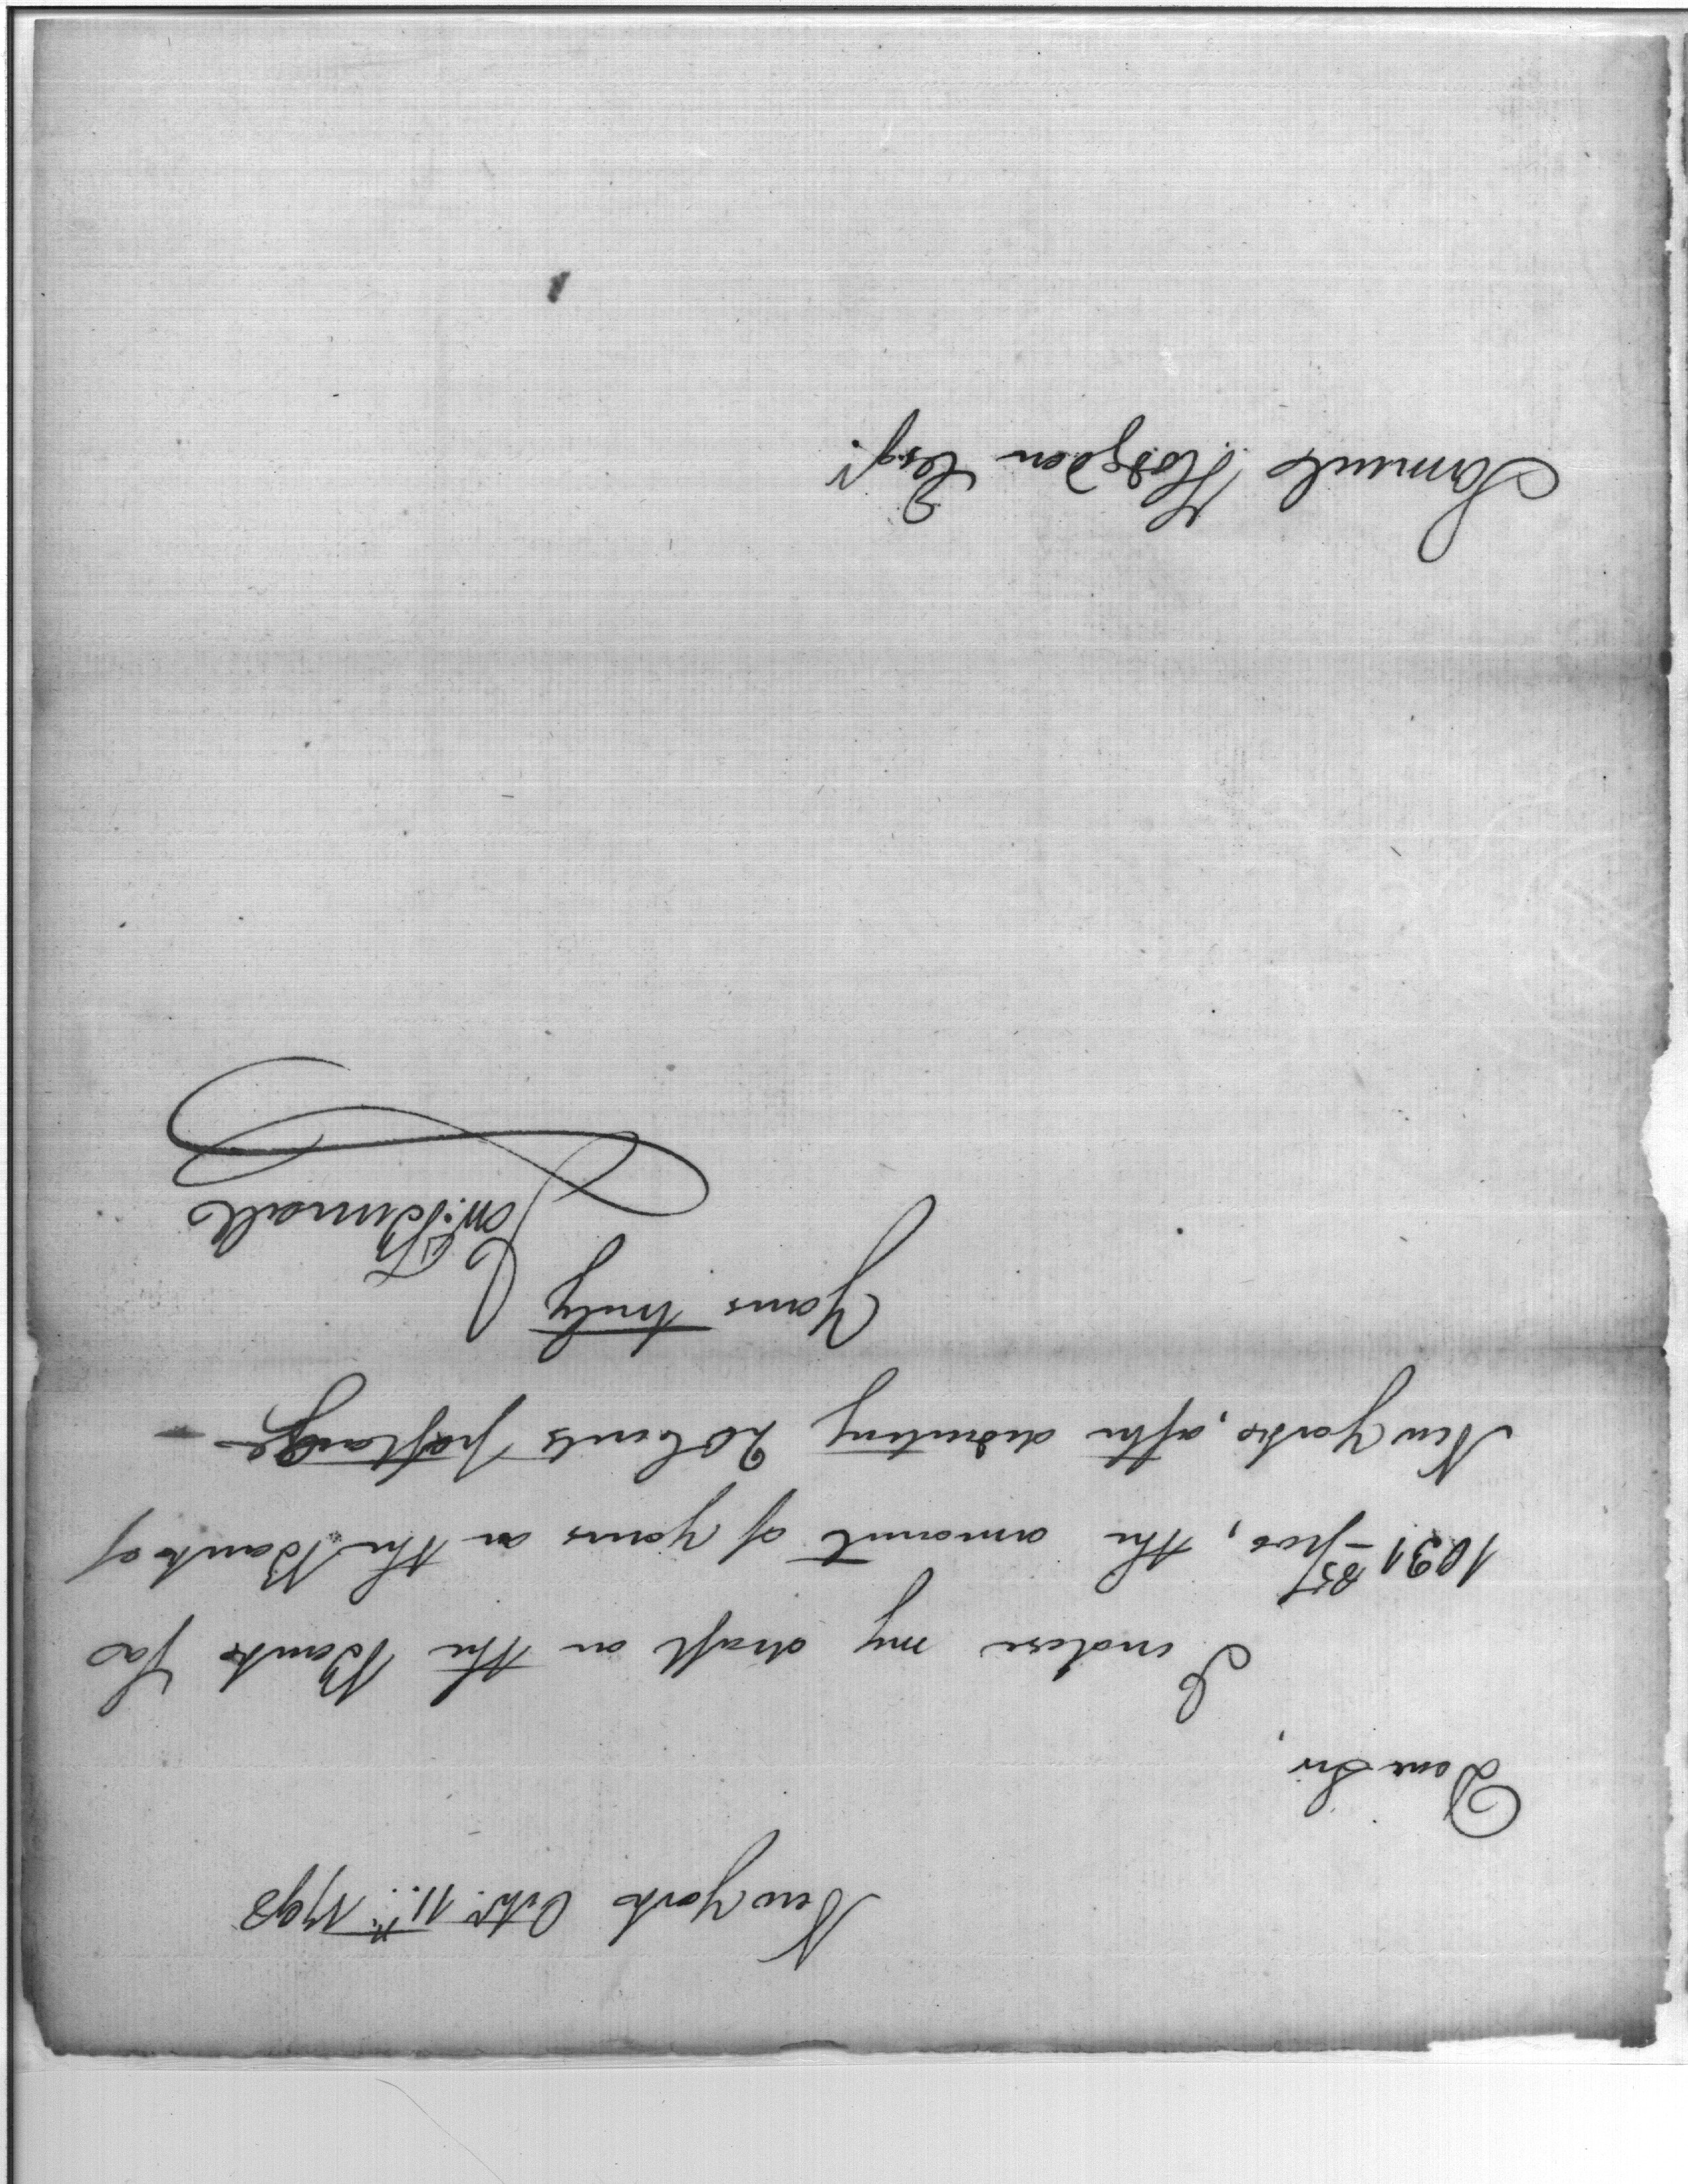 New York Octr. 11th. 1798
Dear Sir,
I inclose my draft on the Bank for
1031 85/100, the amount of yours on the Bank of
New York, after deducting 20 Cents postage
Yours truly
Jon. Burrall
Samuel Hodgdon Esqr.